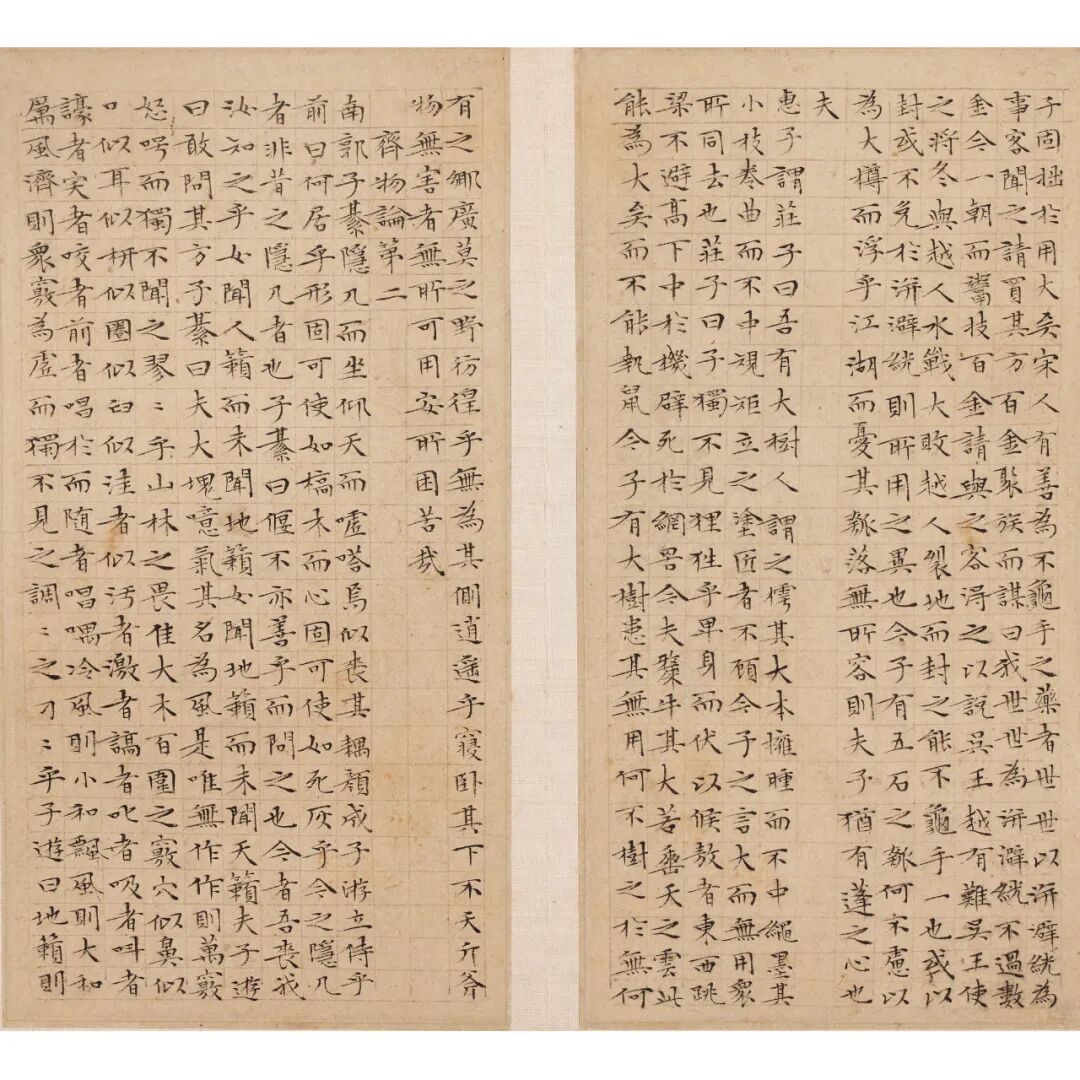 子固拙於用大矣宋人有善為不龜手之藥者世世以洴澼絖為
事客聞之請買其方百金聚族而謀曰我世世為洴澼絖不過數
金今一朝而鬻技百金請與之客得之以說吳王越有難吳王使
之將冬與越人水戰大敗越人裂地而封之能不龜手一也或以
封或不免於洴澼絖則所用之異也今子有五石之瓠何不慮以
為大樽而浮乎江湖而憂其瓠落無所容則夫子猶有蓬之心也
夫
惠子謂莊子曰吾有大樹人謂之樗其大本擁腫而不中繩墨其
小枝卷曲而不中規矩立之塗匠者不顧今子之言大而無用眾
所同去也莊子曰子獨不見狸狌乎卑身而伏以候敖者東西跳
梁不避高下中於機辟死於網罟今夫斄牛其大若垂天之雲此
能為大矣而不能執鼠今子有大樹患其無用何不樹之於無何
有之鄉廣莫之野彷徨乎無為其側逍遙乎寢臥其下不夭斤斧
物無害者無所可用安所困苦哉
齊物論第二
南郭子綦隱几而坐仰天而噓嗒焉似喪其耦顏成子游立侍乎
前曰何居乎形固可使如槁木而心固可使如死灰乎今之隱几
者非昔之隱几者也子綦曰偃不亦善乎而問之也今者吾喪我
汝知之乎女聞人籟而未聞地籟女聞地籟而未聞天籟夫子遊
曰敢問其方子綦曰夫大塊噫氣其名為風是唯無作作則萬竅
怒呺而獨不聞之翏〻乎山林之畏佳大木百圍之竅穴似鼻似
口似耳似枅似圈似臼似洼者似污者激者謞者叱者吸者叫者
譹者宎者咬者前者唱於而随者唱喁冷風則小和飄風則大和
厲風濟則眾竅為虛而獨不見之調〻之刀〻乎子遊曰地籟則